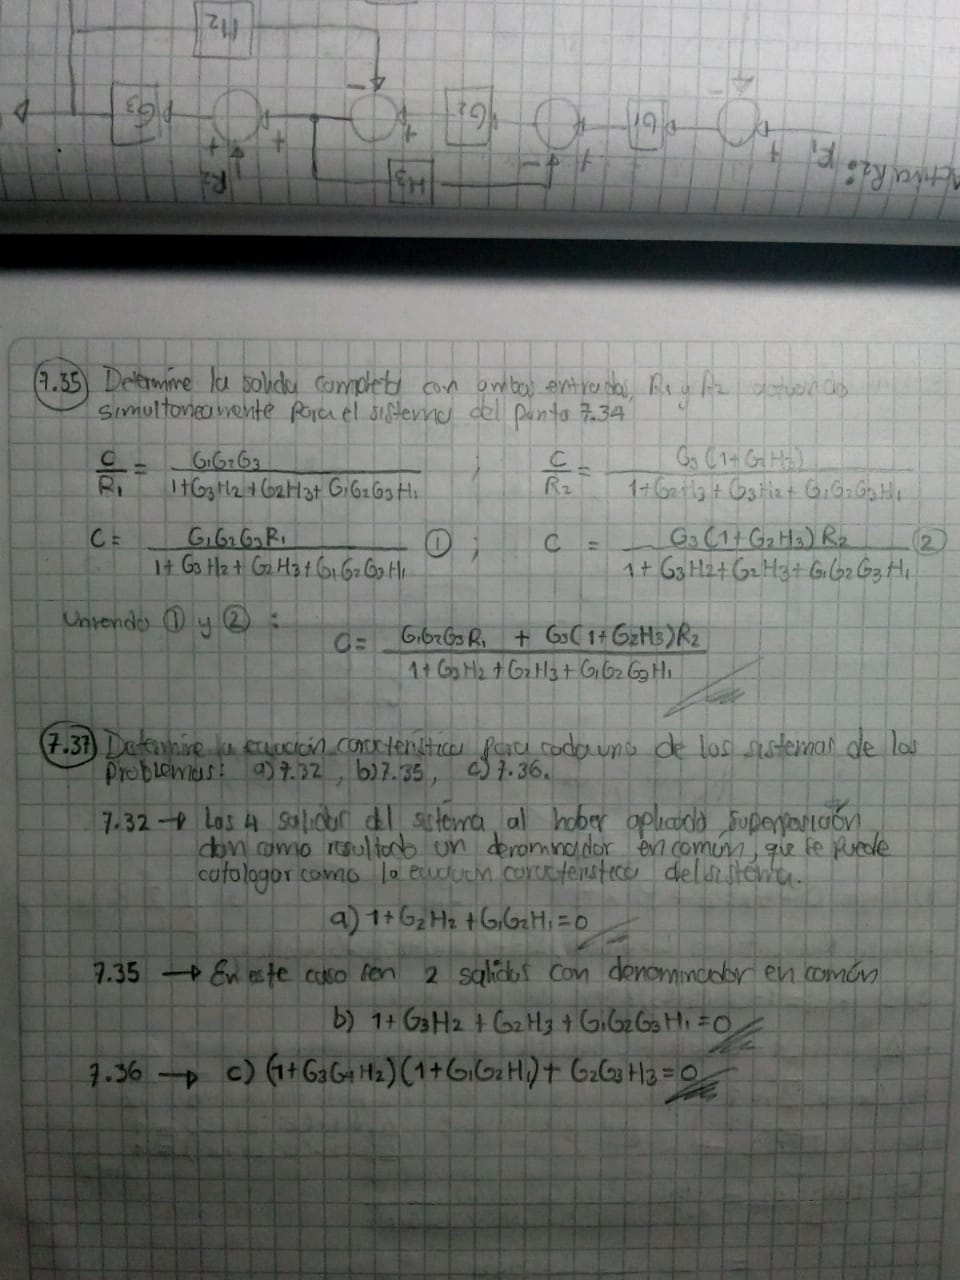 Activa R2:
R1
+
-
G1
+
-
G2
+
-
H3
H2
+
R2
+
G3
7.35 Determine la salida completa con ambas entradas, R1 y R2 actuando
simultaneamente para el sistema del punto 7.34
C/R1 = G1G2G3 / 1+G3H2+G2H3+G1G2G3H1 ; C/R2 = G3(1+G2H3) / 1+G2H3+G3H2+G1G2G3H1
C = G1G2G3R1 / 1+G3H2+G2H3+G1G2G3H1 ① ; C = G3(1+G2H3)R2 / 1+G3H2+G2H3+G1G2G3H1 ②
Uniendo ① y ② :
C = G1G2G3R1 + G3(1+G2H3)R2 / 1+G3H2+G2H3+G1G2G3H1
7.37 Determine la ecuación característica para cada uno de los sistemas de los
problemas: a) 7.32, b) 7.35, c) 7.36.
7.32 → Las 4 salidas del sistema al haber aplicado superposición
dan como resultado un denominador en común, que se puede
catalogar como la ecuación característica del sistema.
a) 1+G2H2+G1G2H1=0
7.35 → En este caso son 2 salidas con denominador en común
b) 1+G3H2+G2H3+G1G2G3H1=0
7.36 → c) (1+G3G4H2)(1+G1G2H1)+G2G3H3=0